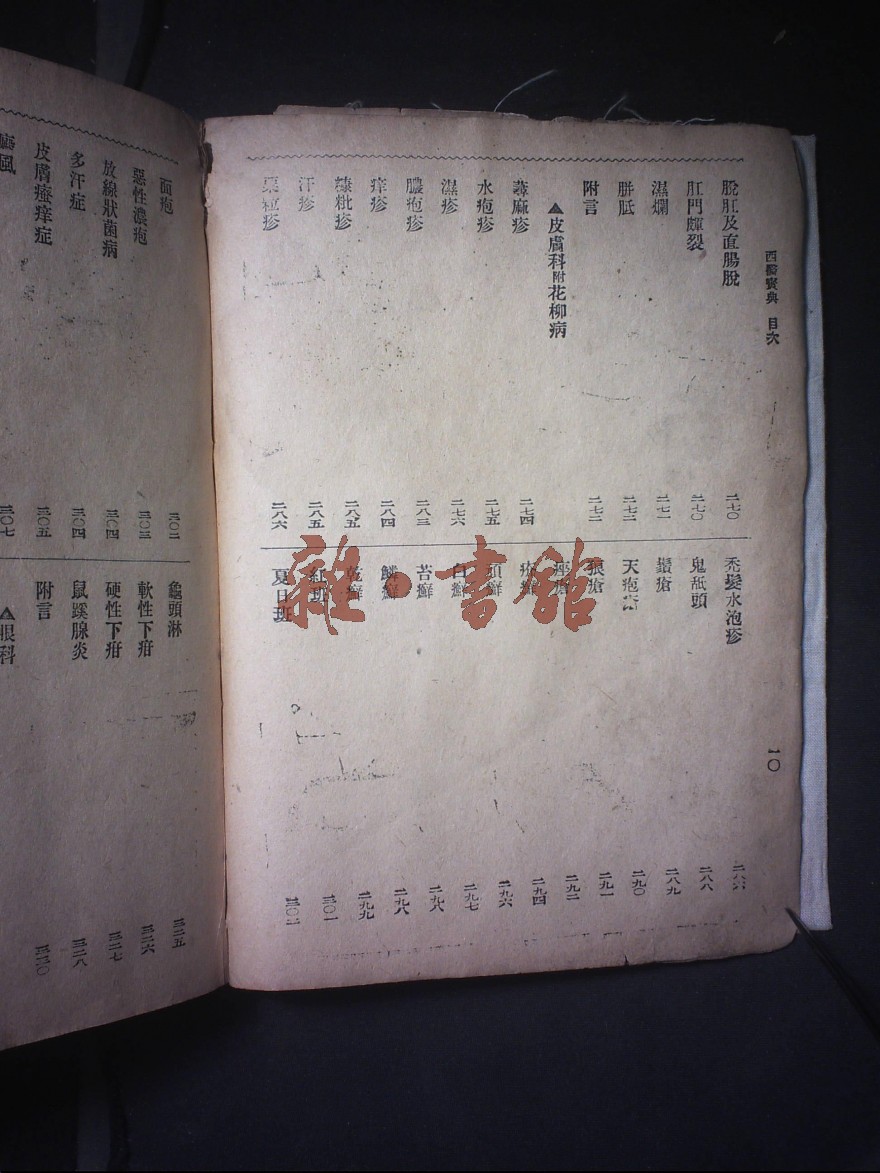 西醫寶典 目次 一〇
脫肛及直腸脫 二七〇
肛門皸裂 二七〇
濕爛 二七一
胼胝 二七二
附言 二七二
▲皮膚科附花柳病
蕁麻疹 二七四
水疱疹 二七五
濕疹 二七六
膿疱疹 二八三
痒疹 二八四
糠粃疹 二八五
汗疹 二八五
粟粒疹 二八六
禿髮水泡疹 二八六
鬼舐頭 二八八
鬚瘡 二八九
天疱瘡 二九〇
狼瘡 二九一
痤瘡 二九二
疥癬 二九四
頭癬 二九六
白癬 二九七
苔癬 二九八
鱗癬 二九八
乾癬 二九九
紅斑 三〇一
夏日斑 三〇二
面疱 三〇二
惡性濃疱 三〇三
放線狀菌病 三〇四
多汗症 三〇四
皮膚瘙痒症 三〇五
三〇七
龜頭淋 三二五
軟性下疳 三二六
硬性下疳 三二七
鼠蹊腺炎 三二八
附言 三三〇
▲眼科
雜·書館